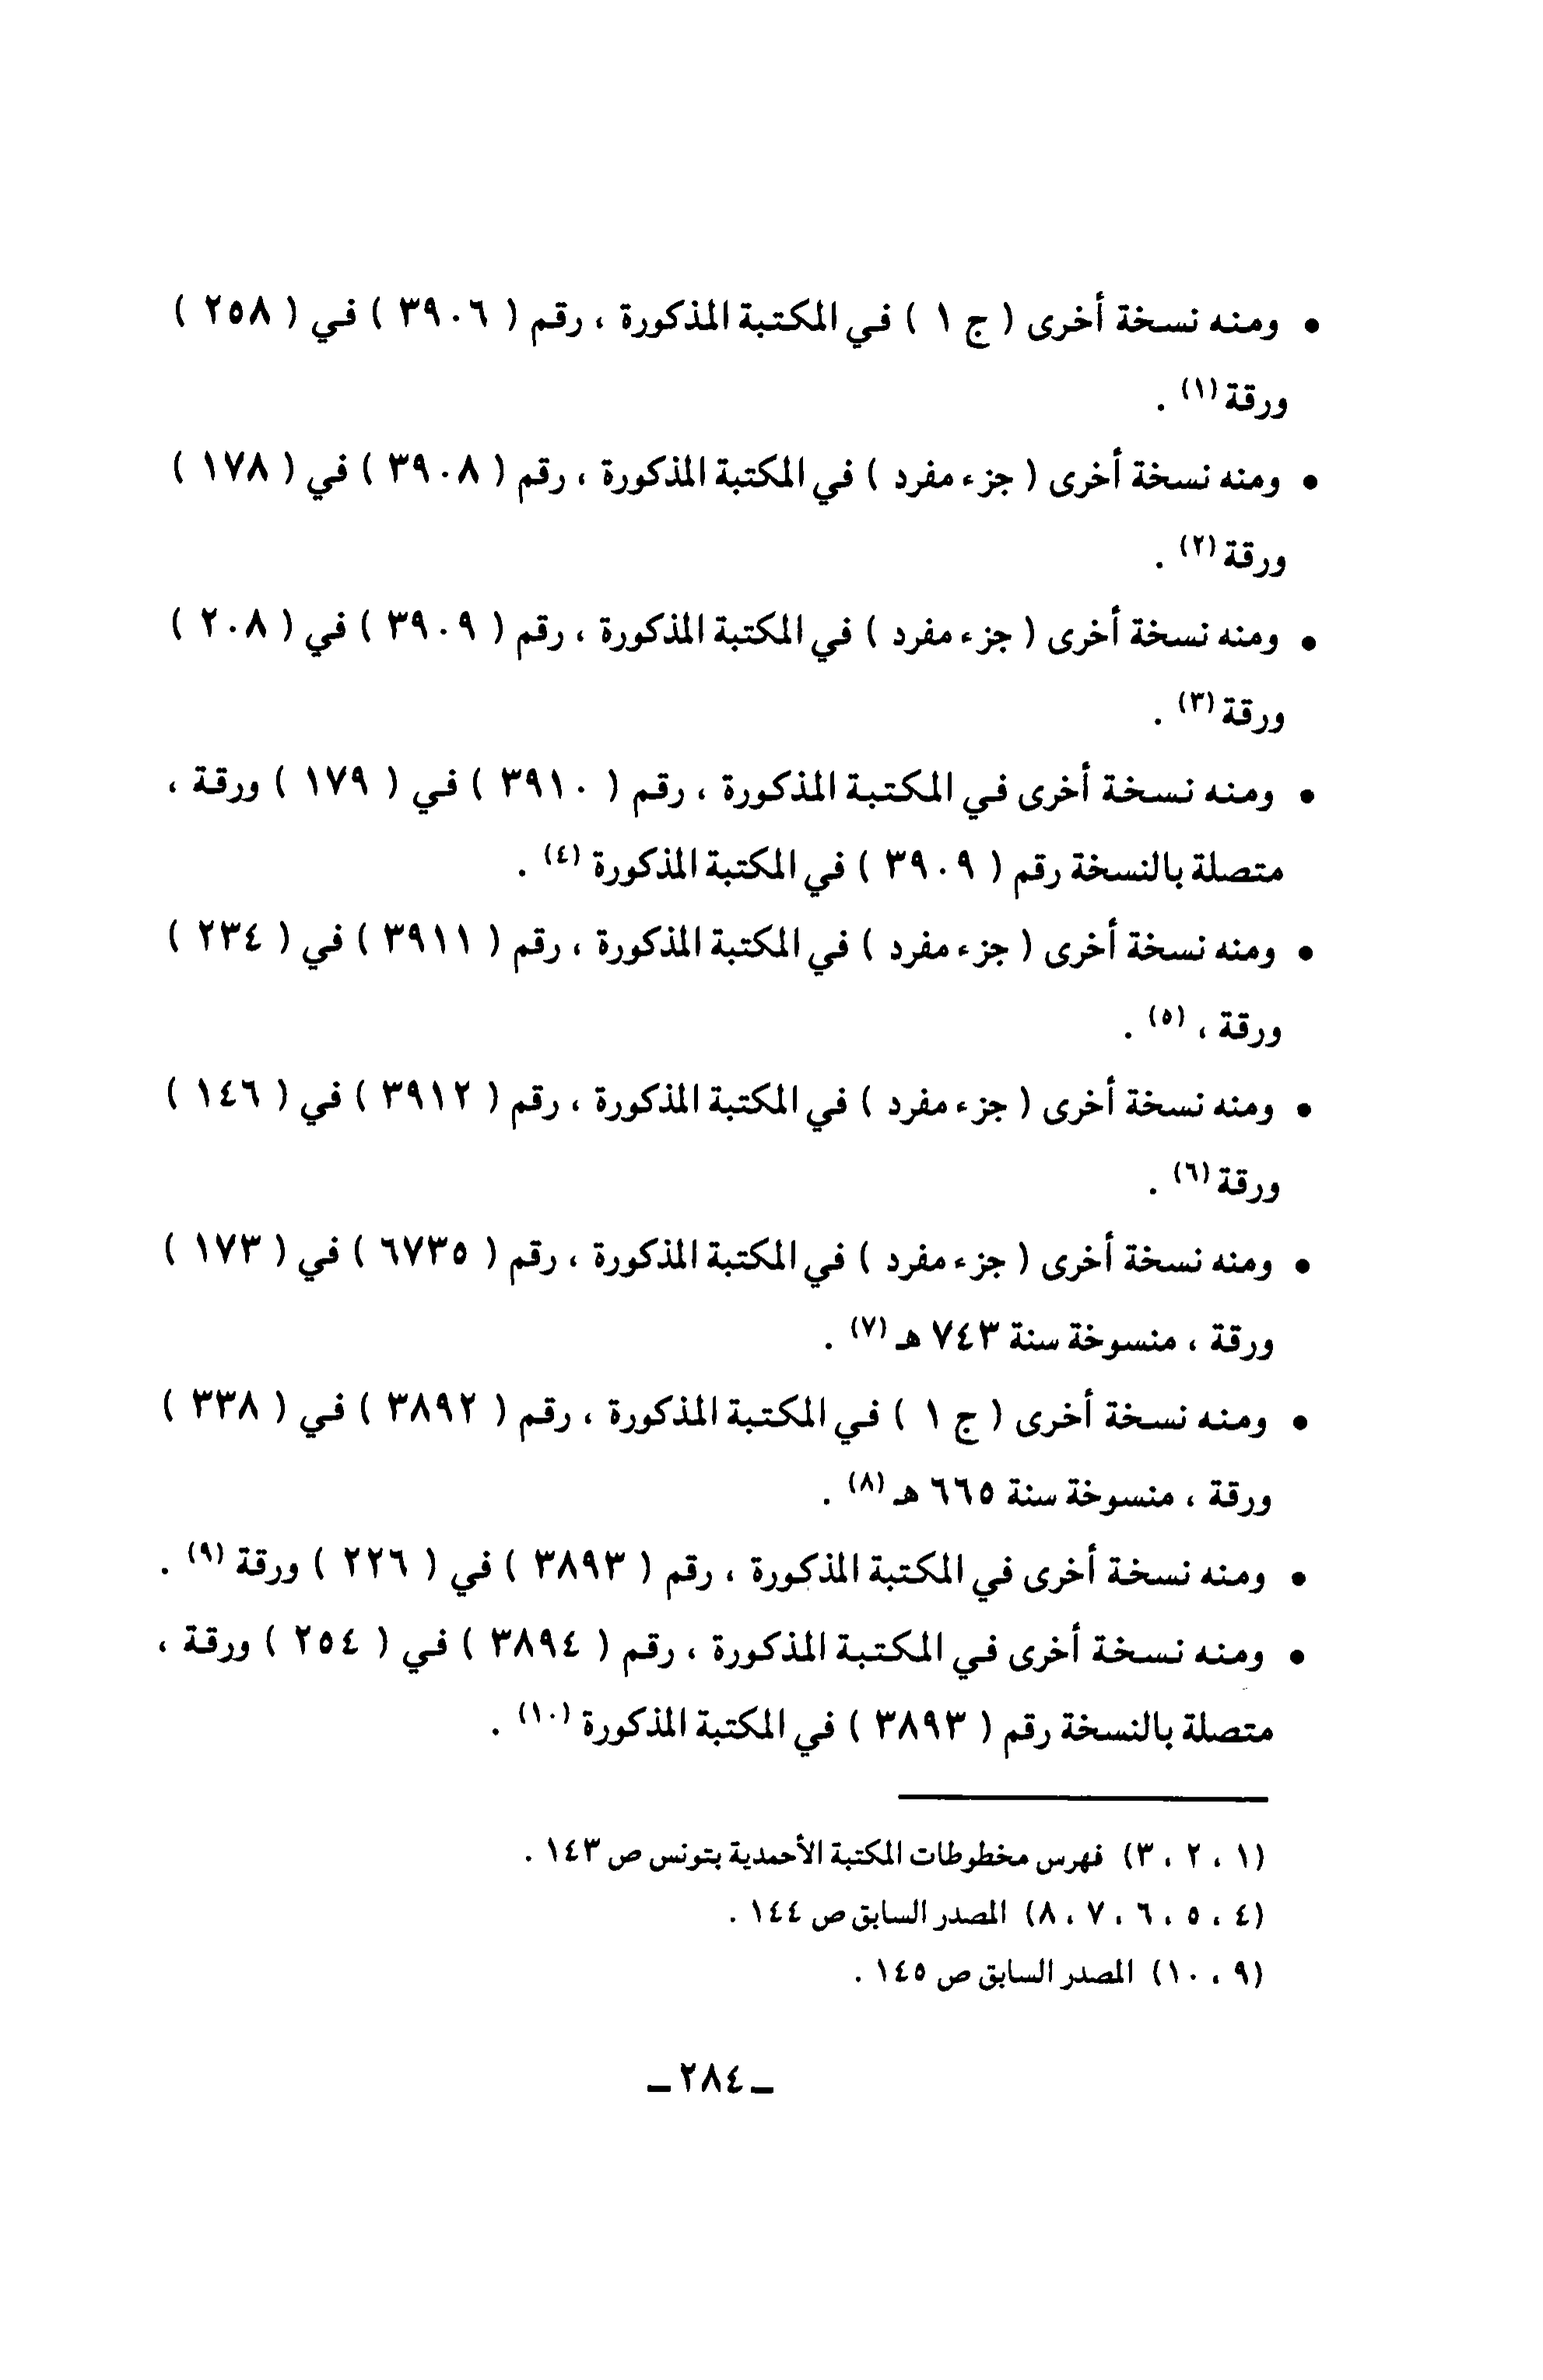 • ومنه نسخة أخرى ( ج ١ ) في المكتبة المذكورة ، رقم ( ٣٩٠٦ ) في ( ٢٥٨ )
ورقة (١) .
• ومنه نسخة أخرى ( جزء مفرد ) في المكتبة المذكورة ، رقم ( ٣٩٠٨ ) في ( ١٧٨ )
ورقة (٢) .
• ومنه نسخة أخرى ( جزء مفرد ) في المكتبة المذكورة ، رقم ( ٣٩٠٩ ) في ( ٢٠٨ )
ورقة (٣) .
• ومنه نسخة أخرى في المكتبة المذكورة ، رقم ( ٣٩١٠ ) في ( ١٧٩ ) ورقة ،
متصلة بالنسخة رقم ( ٣٩٠٩ ) في المكتبة المذكورة (٤) .
• ومنه نسخة أخرى ( جزء مفرد ) في المكتبة المذكورة ، رقم ( ٣٩١١ ) في ( ٢٣٤ )
ورقة ، (٥) .
• ومنه نسخة أخرى ( جزء مفرد ) في المكتبة المذكورة ، رقم ( ٣٩١٢ ) في ( ١٤٦ )
ورقة (٦) .
• ومنه نسخة أخرى ( جزء مفرد ) في المكتبة المذكورة ، رقم ( ٦٧٣٥ ) في ( ١٧٣ )
ورقة ، منسوخة سنة ٧٤٣ هـ (٧) .
• ومنه نسخة أخرى ( ج ١ ) في المكتبة المذكورة ، رقم ( ٣٨٩٢ ) في ( ٣٣٨ )
ورقة ، منسوخة سنة ٦٦٥ هـ (٨) .
• ومنه نسخة أخرى في المكتبة المذكورة ، رقم ( ٣٨٩٣ ) في ( ٢٢٦ ) ورقة (٩) .
• ومنه نسخة أخرى في المكتبة المذكورة ، رقم ( ٣٨٩٤ ) في ( ٢٥٤ ) ورقة ،
متصلة بالنسخة رقم ( ٣٨٩٣ ) في المكتبة المذكورة (١٠) .
(١ ، ٢ ، ٣) فهرس مخطوطات المكتبة الأحمدية بتونس ص ١٤٣ .
(٤ ، ٥ ، ٦ ، ٧ ، ٨) المصدر السابق ص ١٤٤ .
(٩ ، ١٠) المصدر السابق ص ١٤٥ .
ـ ٢٨٤ ـ